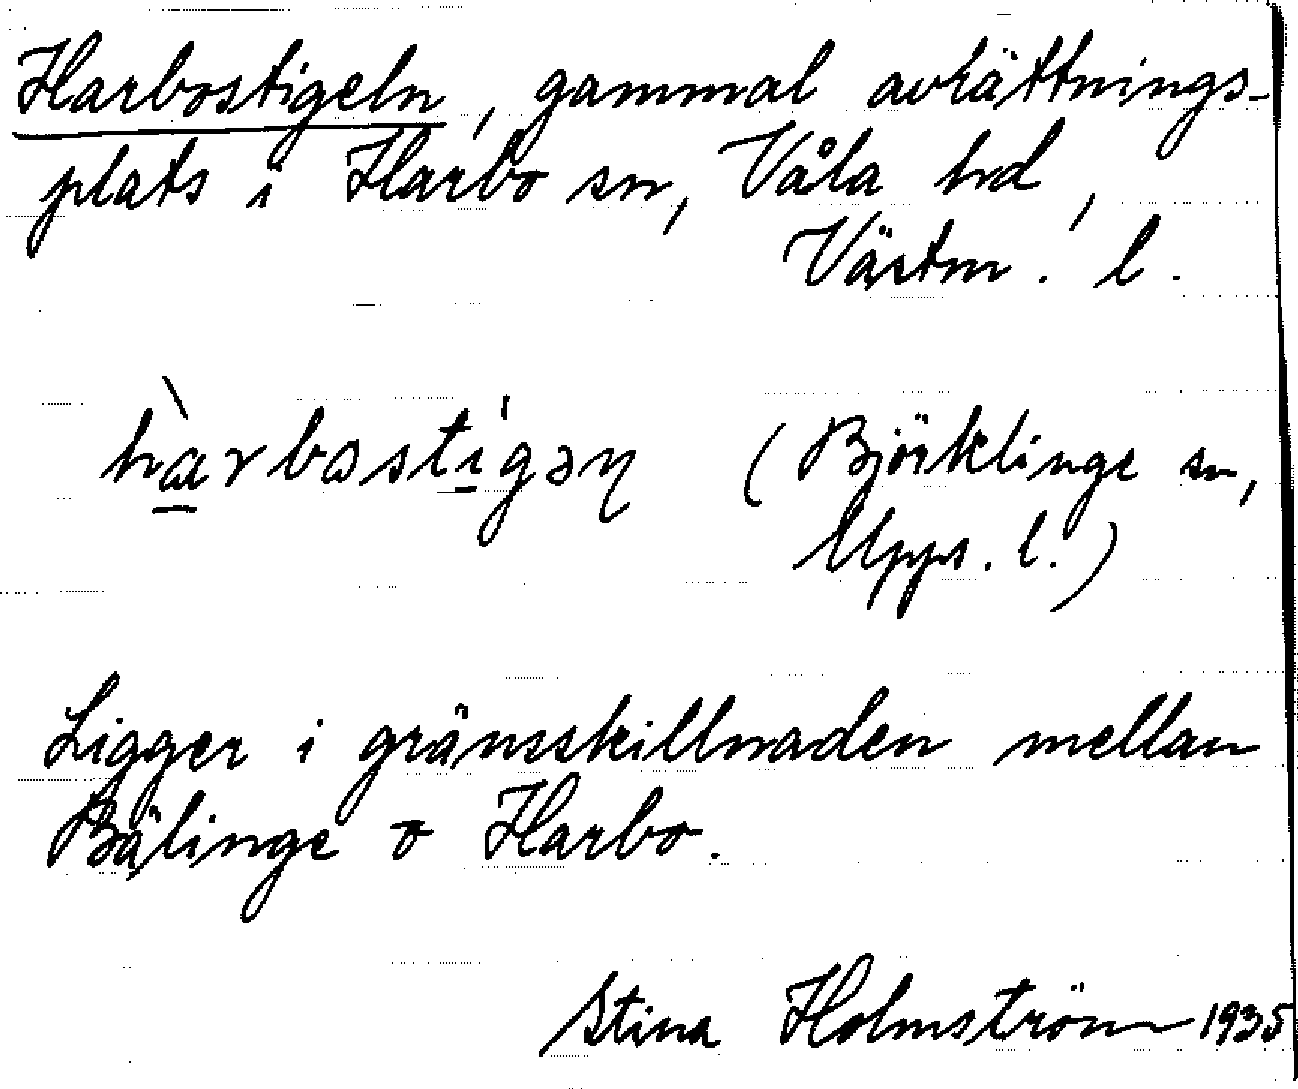 Harbostigeln, gammal avrättnings-
plats i Harbo sn, Våla hd,
Västm. l.
hàrbostígəɳ (Björklinge sn,
Upps. l.)
Ligger i gränsskillnaden mellan
Bälinge o Harbo.
Stina Holmström 1935